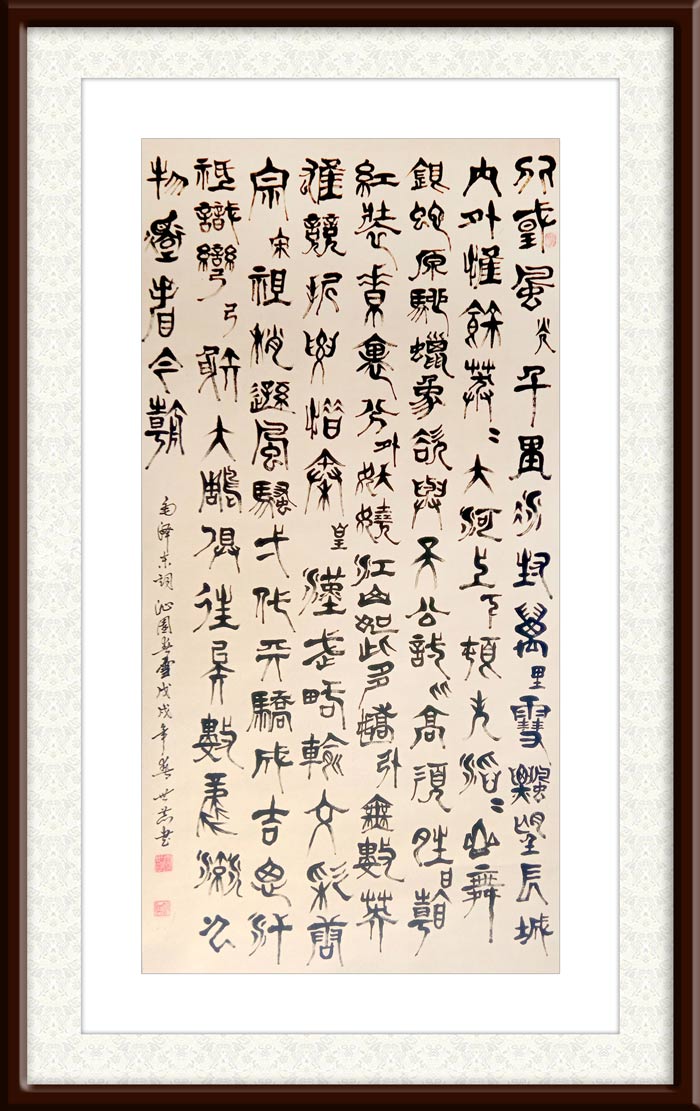 北國風光千里冰封萬里雪飄望長城
內外惟餘莽〻大河上下頓失滔〻山舞
銀蛇原馳蠟象欲與天公試比高須晴日看
紅裝素裹分外妖嬈江山如此多嬌引無數英
雄競折腰惜秦皇漢武略輸文彩唐
宗宋祖稍遜風騷弌代天驕成吉思汗
祗識彎弓射大鵰俱往矣數風流人
物還看今朝
毛泽東詞沁園春雪戊戌年世書